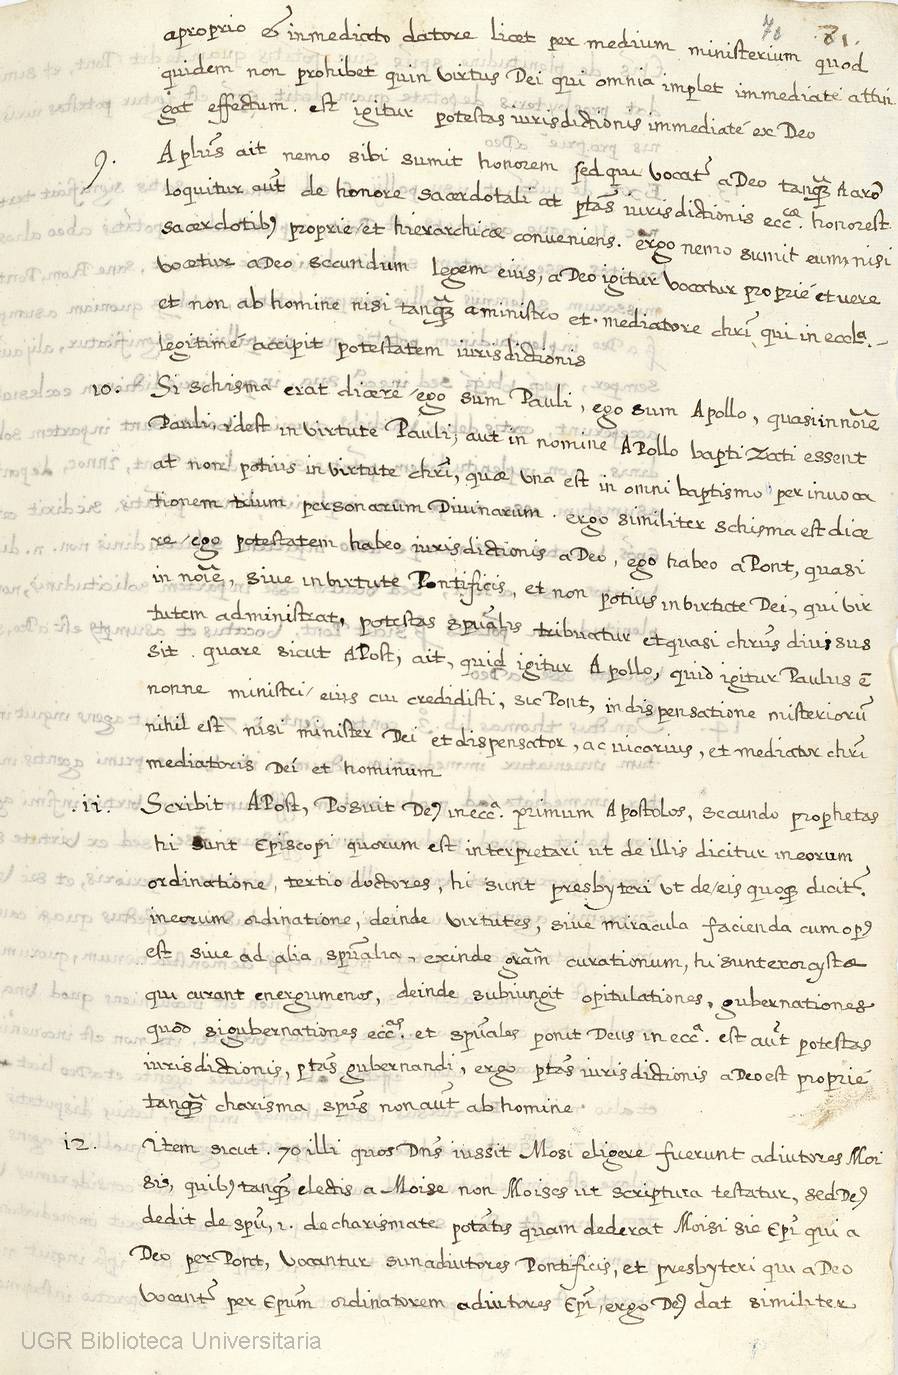 70 81.
a proprio et inmediato datore licet per medium ministerium quod
quidem non prohibet quin virtus Dei qui omnia implet immediate attin
gat effectum. est igitur potestas iurisdictionis immediaté ex Deo
9. Aplūs ait nemo sibi sumit honorem sed qui vocat̄ a Deo tanq̄ Aarō
loquitur aūt de honore sacerdotali at ptās iurisdictionis eccæ. honor est
sacerdotib9 proprie et hierarchicæ conveniens. ergo nemo sumit eum, nisi
vocetur a Deo secundum legem eius, a Deo igitur vocatur proprié et vere
et non ab homine nisi tanq̄ a ministro et. mediatore chrī qui in eccla.
legitimé accipit potestatem iurisdictionis
10. Si schisma erat dicere ego sum Pauli, ego sum Apollo, quasi in noīe
Pauli, idest in virtute Pauli, aut in nomine Apollo baptizati essent
at non potius in virtute chrī, quæ una est in omni baptismo per invoca
tionem trium personarum Divinarum. ergo similiter schisma est dice
re ego potestatem habeo iurisdictionis a Deo, ego habeo a Pont, quasi
in noīe, sive in virtute Pontificis, et non potius in virtute Dei, qui vir
tutem administrat, potestas spūalis tribuatur et quasi chrūs divisus
sit. quare sicut APost, ait, quid igitur Apollo, quid igitur Paulus ē
nonne ministri eius cui credidisti, sic Pont, in dispensatione misteriorū
nihil est nisi minister Dei et dispensator, ac vicarius, et mediator chrī
mediatoris Dei et hominum
.ii. Scribit APost, Posuit De9 in ecca. primum Apostolos, secundo prophetas
hi sunt Episcopi quorum est interpretari ut de illis dicitur in eorum
ordinatione, tertio doctores, hi sunt presbyteri ut de eis quoq̄ dicit̄.
in eorum ordinatione, deinde virtutes, sive miracula facienda cum op9
est sive ad alia spūalia, exinde grām curationum, hi sunt exorcystæ
qui curant energumenos, deinde subiungit opitulationes, gubernationes
quod si gubernationes eccas. et spūales ponit Deus in ecca. est aūt potestas
iurisdictionis, ptās gubernandi, ergo ptās iurisdictionis a Deo est proprié
tanq̄ charisma spūs non aūt ab homine
i2. Item sicut. 70 illi quos Dn̄s iussit Mosi eligere fuerunt adiutores Moi
sis, quib9 tanq̄ electis a Moise non Moises ut scriptura testatur, sed De9
dedit de spū, i. de charismate potātis quam dederat Moisi sic Epī qui a
Deo per Pont, vocantur sunadiutores Pontificis, et presbyteri qui a Deo
vocant̄ per Epūm ordinatorem adiutores Epī, ergo De9 dat similiter
UGR Biblioteca Universitaria